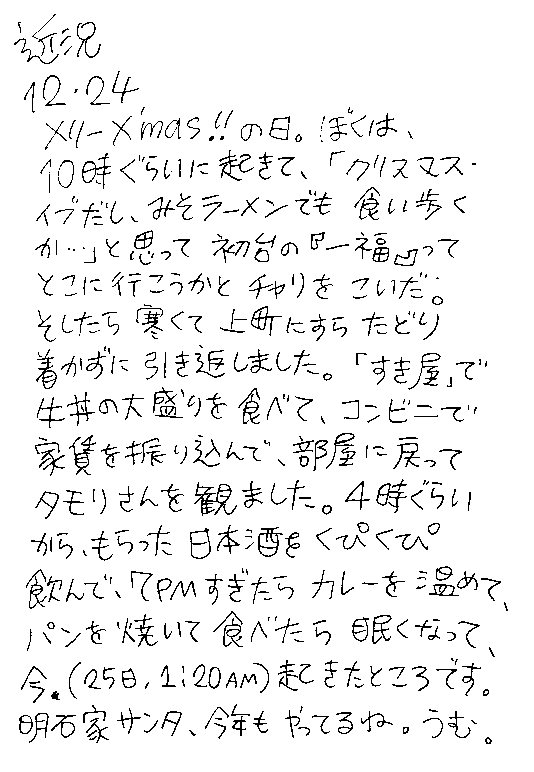 近況
12.24
メリーX'mas!!の日。ぼくは、
10時ぐらいに起きて、「クリスマス・
イブだし、みそラーメンでも食い歩く
か…」と思って初台の『一福』って
とこに行こうかとチャリをこいだ。
そしたら寒くて上町にすらたどり
着かずに引き返しました。「すき屋」で
牛丼の大盛りを食べて、コンビニで
家賃を振り込んで、部屋に戻って
タモリさんを観ました。4時ぐらい
から、もらった日本酒をくぴくぴ
飲んで、7PMすぎたらカレーを温めて、
パンを焼いて食べたら眠くなって、
今。(25日,1:20AM)起きたところです。
明石家サンタ、今年もやってるね。うむ。